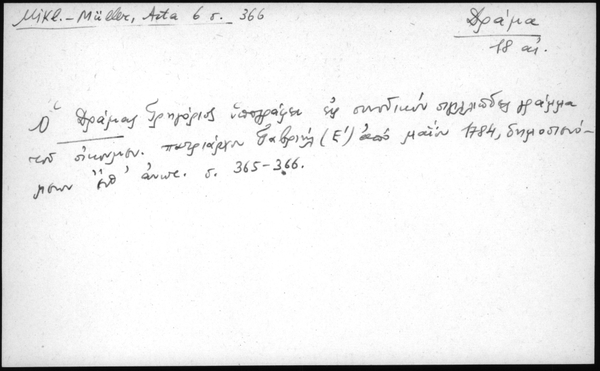 Mikl.–Müller, Acta 6 σ. 366
Δράμα
18 αἰ.
Ὁ Δράμας Γρηγόριος ὑπογράφει εἰς συνοδικόν σιγιλλιῶδες γράμμα
τοῦ οἰκουμεν. πατριάρχου Γαβριήλ (Ε') ἀπό μαΐου 1784, δημοσιευό-
μενον ἀνωτ. σ. 365–366.